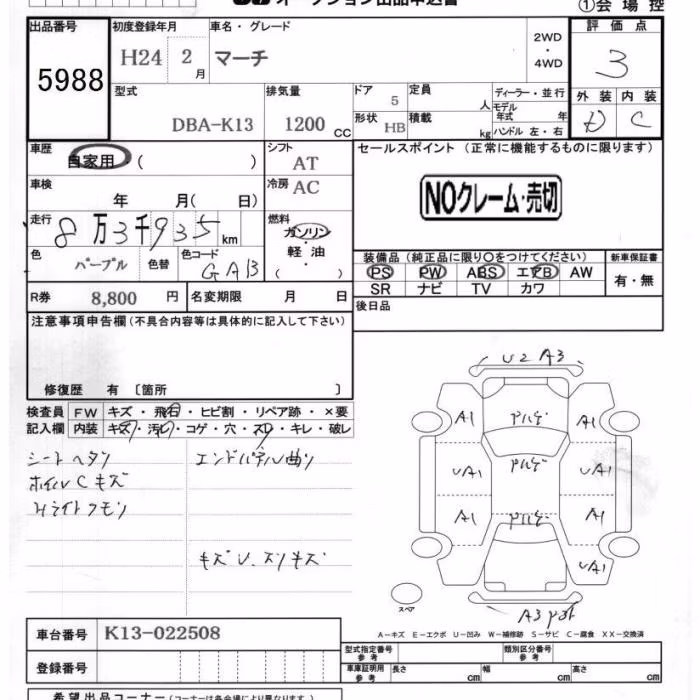 オークション出品申込書
①会場控
出品番号 初度登録年月 車名・グレード 評価点
5988 H24 2月 マーチ 2WD・4WD 3
型式 排気量 ドア 定員 ディーラー・並行 外装 内装
DBA-K13 1200cc 5 人 モデル年式 年 D C
形状 HB 積載 kg ハンドル 左・右
車歴 自家用 ( ) シフト AT セールスポイント (正常に機能するものに限ります)
車検 年 月( 日) 冷房 AC NOクレーム・売切
走行 8万3千935km 燃料 ガソリン 軽油 ( )
色 パープル 色替 色コード GAB
装備品 (純正品に限り○をつけてください) 新車保証書
PS PW ABS エアB AW 有・無
SR ナビ TV カワ
R券 8,800円 名変期限 月 日 後日品
注意事項申告欄(不具合内容等は具体的に記入して下さい)
修復歴 有 〔箇所 〕
検査員 FW キズ・飛石・ヒビ割・リペア跡・×要
記入欄 内装 キズ・汚レ・コゲ・穴・スレ・キレ・破レ
シートヘタリ エンドパネル曲リ
ホイルCキズ
Hライトクモリ
キズU、スリキズ
U2 A3
A1 A1
UA1 UA1
A1 A1
UA1
スペア
A3
A-キズ E-エクボ U-凹み W-補修跡 S-サビ C-腐食 XX-交換済
車台番号 K13-022508
型式指定番号 参考 類別区分番号 参考
登録番号 車庫証明用 参考 長さ cm 幅 cm 高さ cm
希望出品コーナー(コーナーは各会場により異なります。)